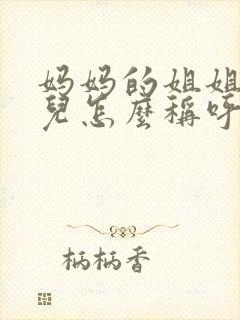 妈妈的姐姐
兒怎麼稱呼
柄柄香